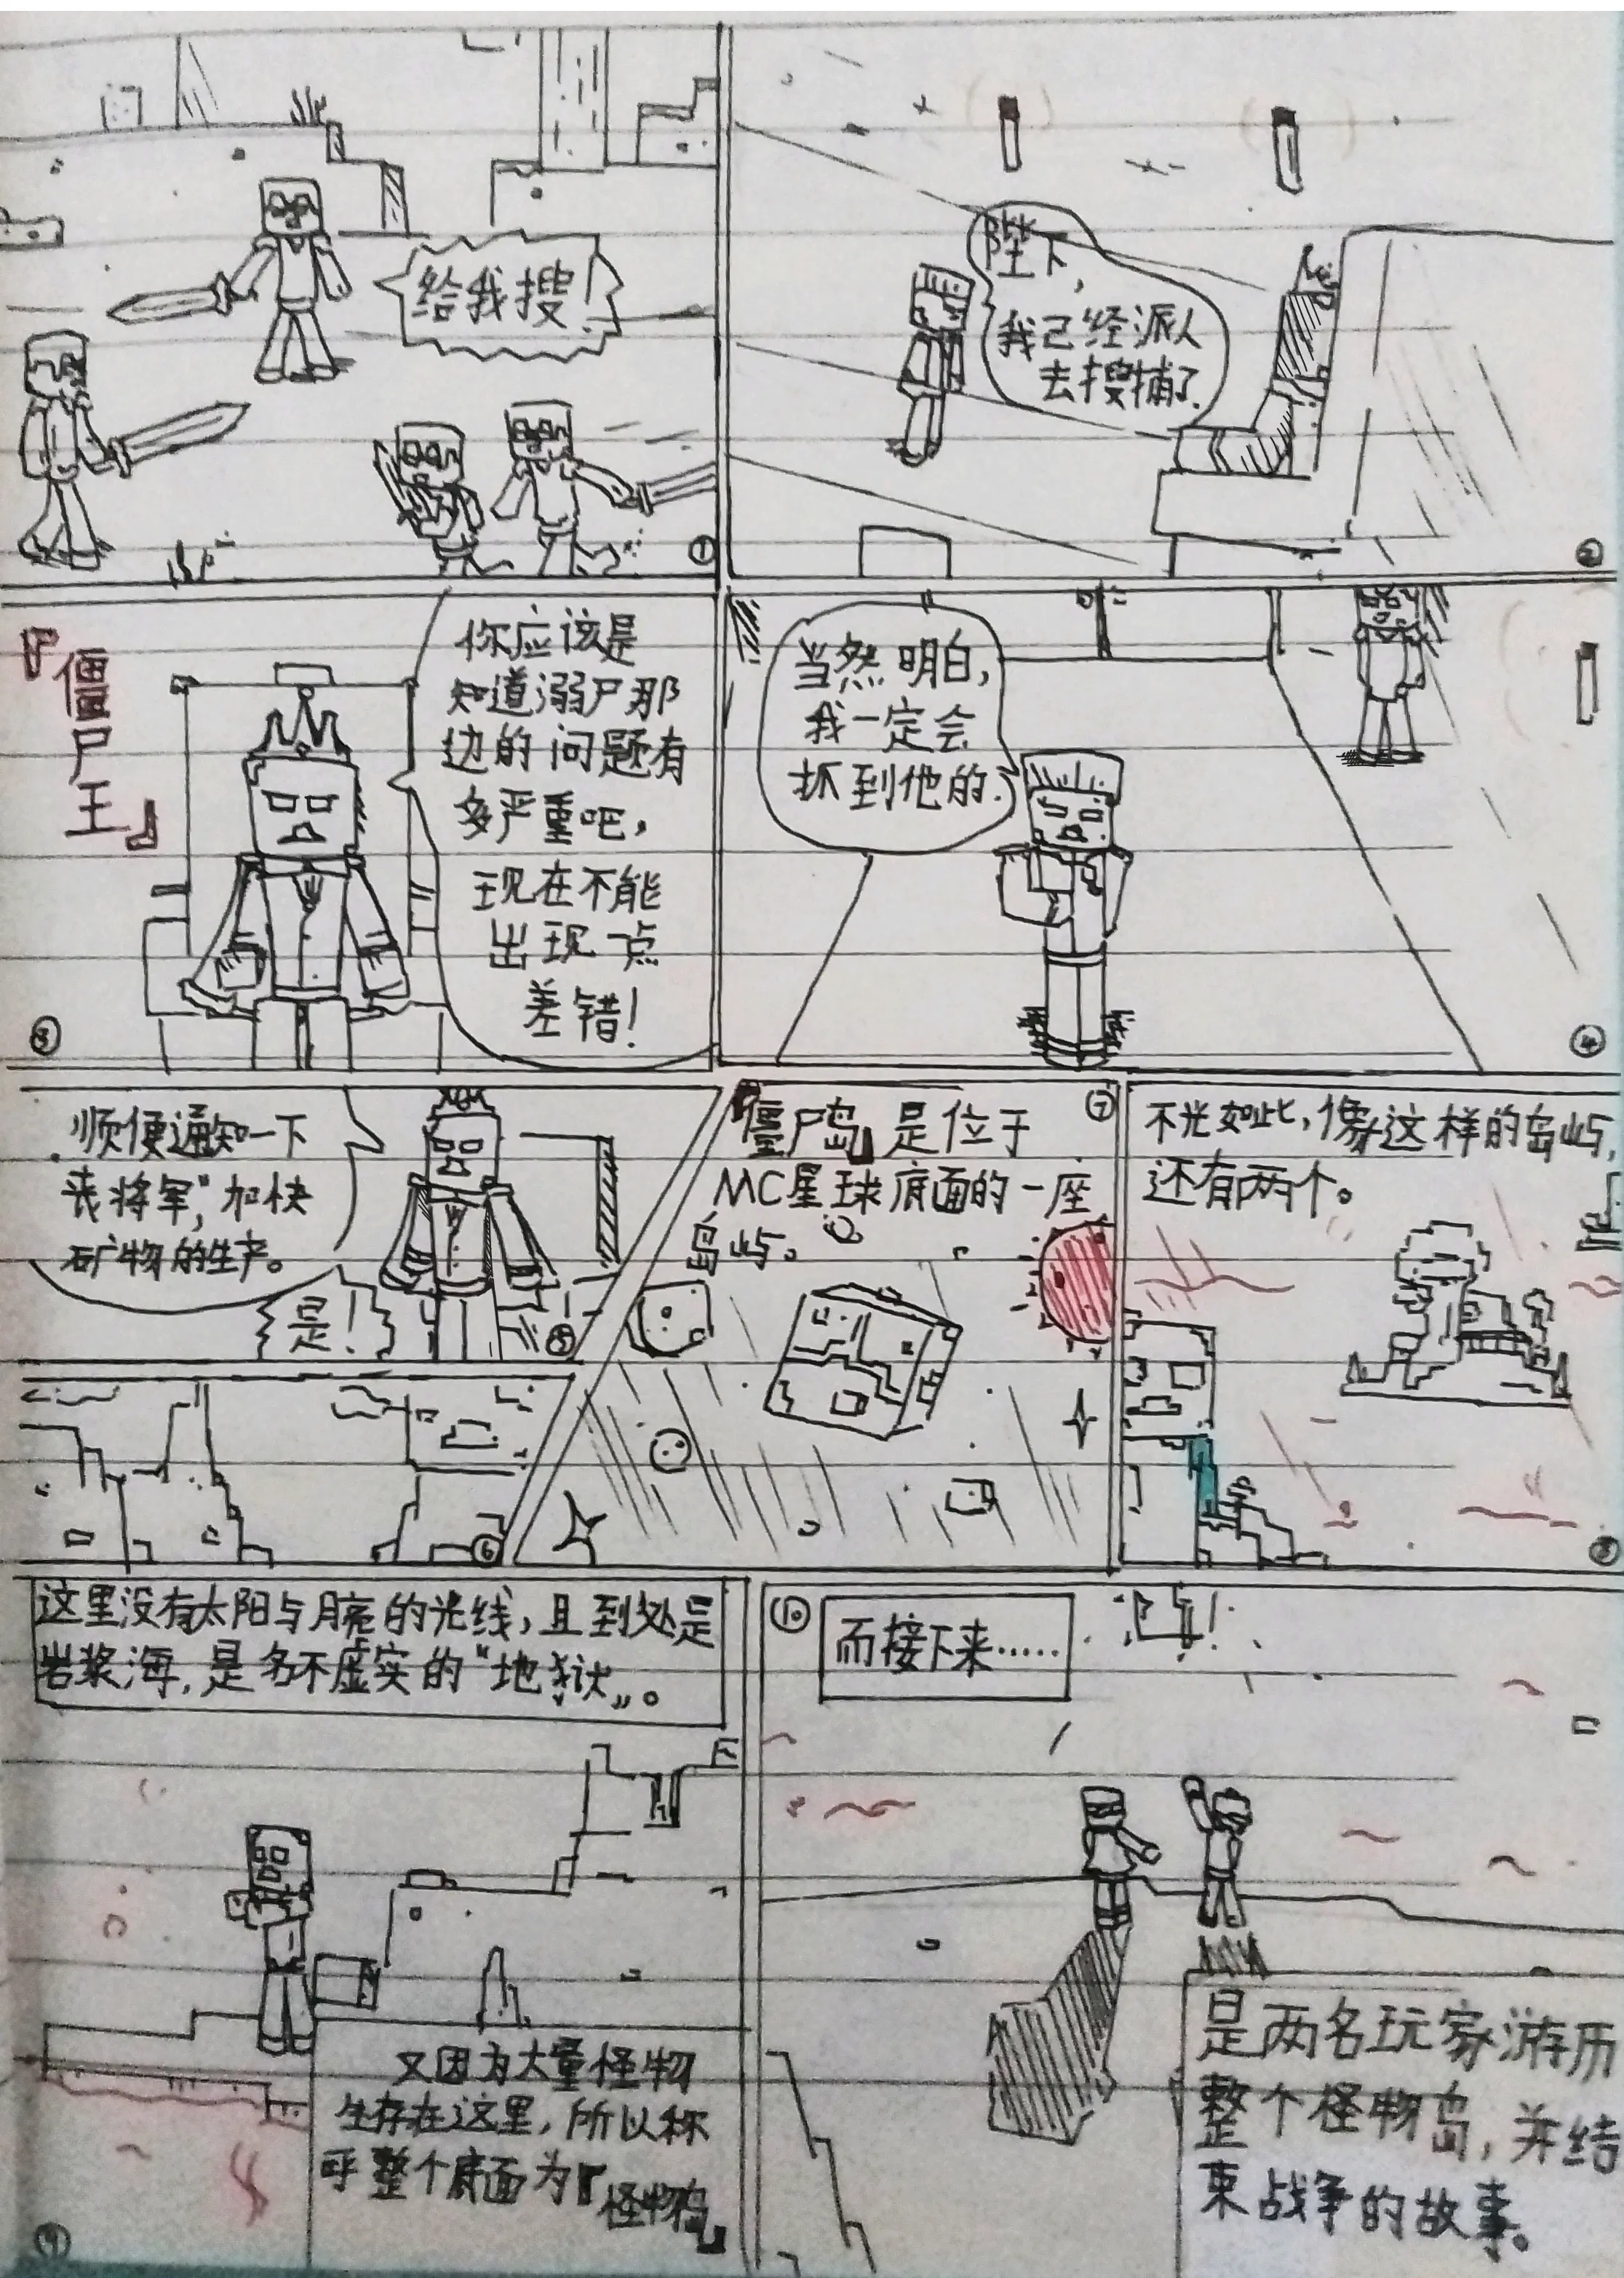 给我搜！
①
陛下，
我已经派人
去搜捕了.
②
『僵尸王』
你应该是
知道溺尸那
边的问题有
多严重吧，
现在不能
出现一点
差错！
③
当然明白，
我一定会
抓到他的.
④
顺便通知一下
"丧将军"，加快
矿物的生产。
是！
⑤
⑥
『僵尸岛』是位于
MC星球底面的一座
岛屿。
⑦
不光如此，像这样的岛屿，
还有两个。
⑧
这里没有太阳与月亮的光线，且到处是
岩浆海，是名不虚实的"地狱"。
又因为大量怪物
生存在这里，所以称
呼整个底面为『怪物岛』
⑨
⑩
而接下来……
是两名玩家游历
整个怪物岛，并结
束战争的故事。